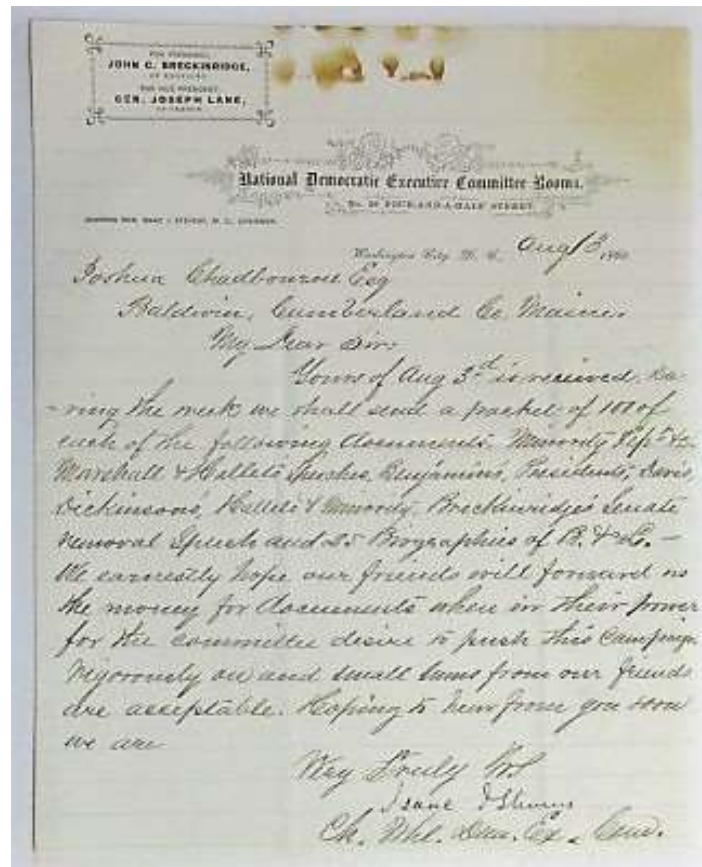 FOR PRESIDENT,
JOHN C. BRECKINRIDGE,
OF KENTUCKY.
FOR VICE PRESIDENT,
GEN. JOSEPH LANE,
OF OREGON.
National Democratic Executive Committee Rooms.
No. 28 FOUR-AND-A-HALF STREET
HON. ISAAC I. STEVENS, CHAIRMAN.
Washington City, D. C., Aug 13 1860
Joshua Chadbourne Esq
Baldwin, Cumberland Co. Maine.
My Dear Sir
Yours of Aug 3d is received. Du
-ring the week we shall send a packet of 100 of
each of the following documents. Minority Rept &c
Marshall & Hallets Speches, Benjamins', Presidents', Davis,
Dickinsons', Hallets & Minority, Breckinridge's Senate
removal Speech and 25 Biographies of B. & L. -
We earnestly hope our friends will forward us
the money for documents when in their power
for the committee desire to push this Campaign
Vigorously on and small sums from our friends
are acceptable. Hoping to hear from you soon
we are
Very Truly Yrs
Isaac I Stevens
Ch. Ntl. Dem. Ex. Com.